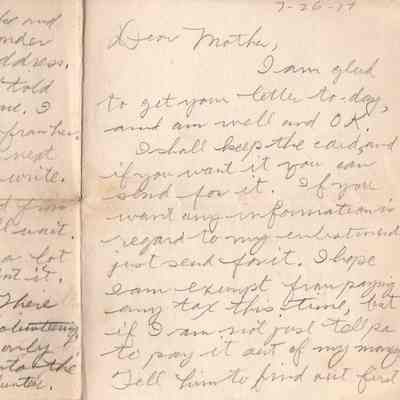 he and
onder
ddress.
told
me. I
from her.
next
write.
from
l wait.
a lot
int it.
There
volunteering
only
into the
unteer.
7-26-17
Dear Mother,
I am glad
to get your letter to-day,
and am well and OK.
I shall keep the card, and
if you want it you can
send for it. If you
want any information in
regard to my enlistment
just send for it. I hope
I am exempt from paying
any tax this time, but
if I am not just tell pa
to pay it out of my money
Tell him to find out first